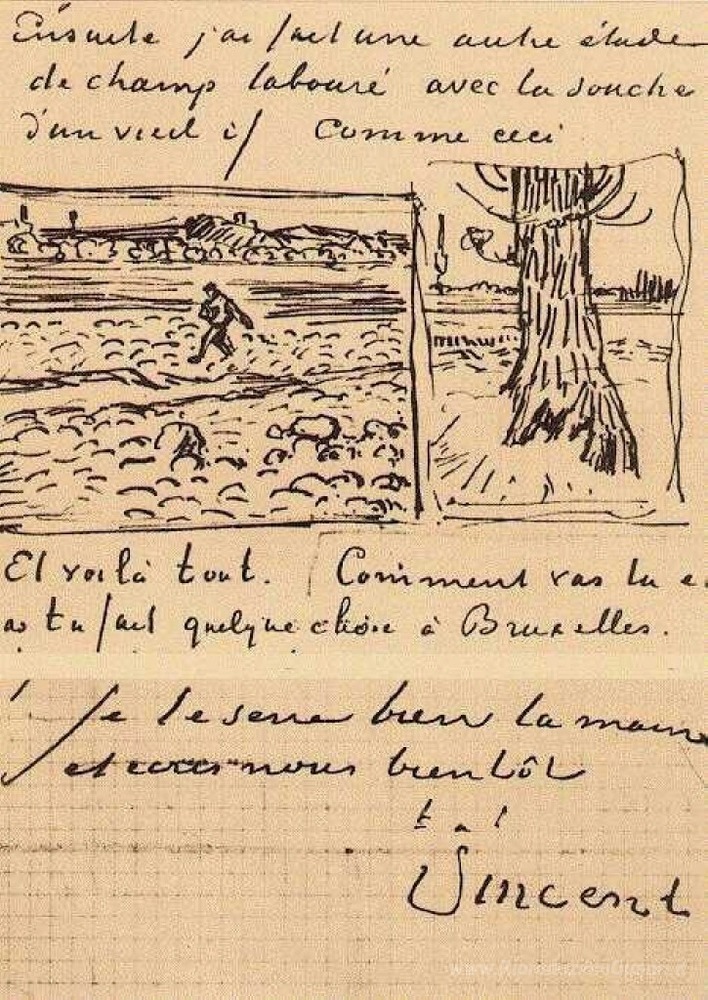 Ensuite j'ai fait une autre étude
de champ labouré avec la souche
d'un vieil if Comme ceci
Et voilà tout. Comment vas tu e
as tu fait quelque chose à Bruxelles.
Je te serre bien la main
et nous bientôt
t. a t
Vincent